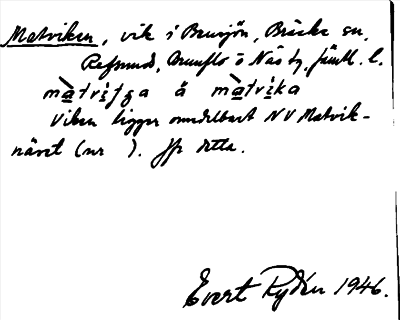 Matviken, vik i Revsjön, Bräcke sn,
Refsund, Brunflo o Näs tg, Jämtl. l.
màtvi̇tja å màtvika
Viken ligger omedelbart NV Matvik-
näret (nr ). Jfr detta.
Evert Rydén 1946.